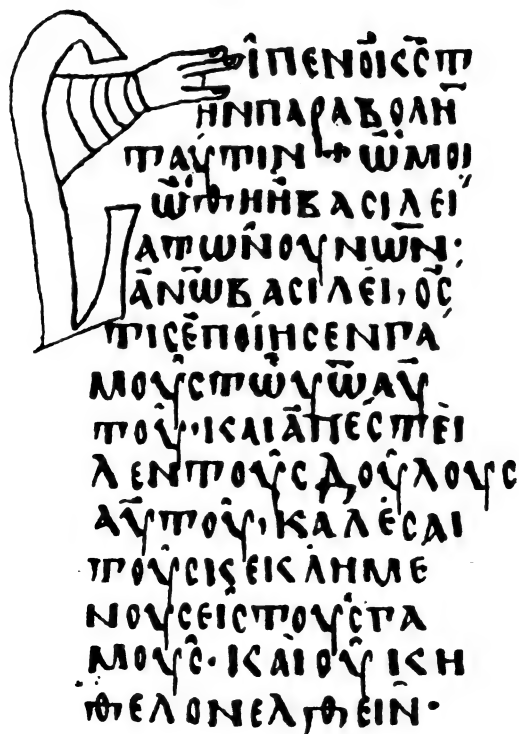 ΕΙΠΕΝΟΚ̅C̅Τ
ΗΝΠΑΡΑΒΟΛΗ̅
ΤΑΥΤΙΝ+ΩΜΟΙ
ΩΘΗΗΒΑCΙΛΕΙ
ΑΤΩΝΟΥΝΩ̅Ν̅·
ΑΝΩ̅ΒΑCΙΛΕΙ,ΟC
ΤΙCΕΠΟΙΗCΕΝΓΑ
ΜΟΥCΤΩΥΩ̅ΑΥ
ΤΟΥ·ΚΑΙΑΠΕCΤΕΙ
ΛΕΝΤΟΥCΔΟΥΛΟΥC
ΑΥΤΟΥ,ΚΑΛΕCΑΙ
ΤΟΥCΚΕΚΛΗΜΕ
ΝΟΥCΕΙCΤΟΥCΓΑ
ΜΟΥC·ΚΑΙΟΥΚΗ
ΘΕΛΟΝΕΛΘΕΙΝ·